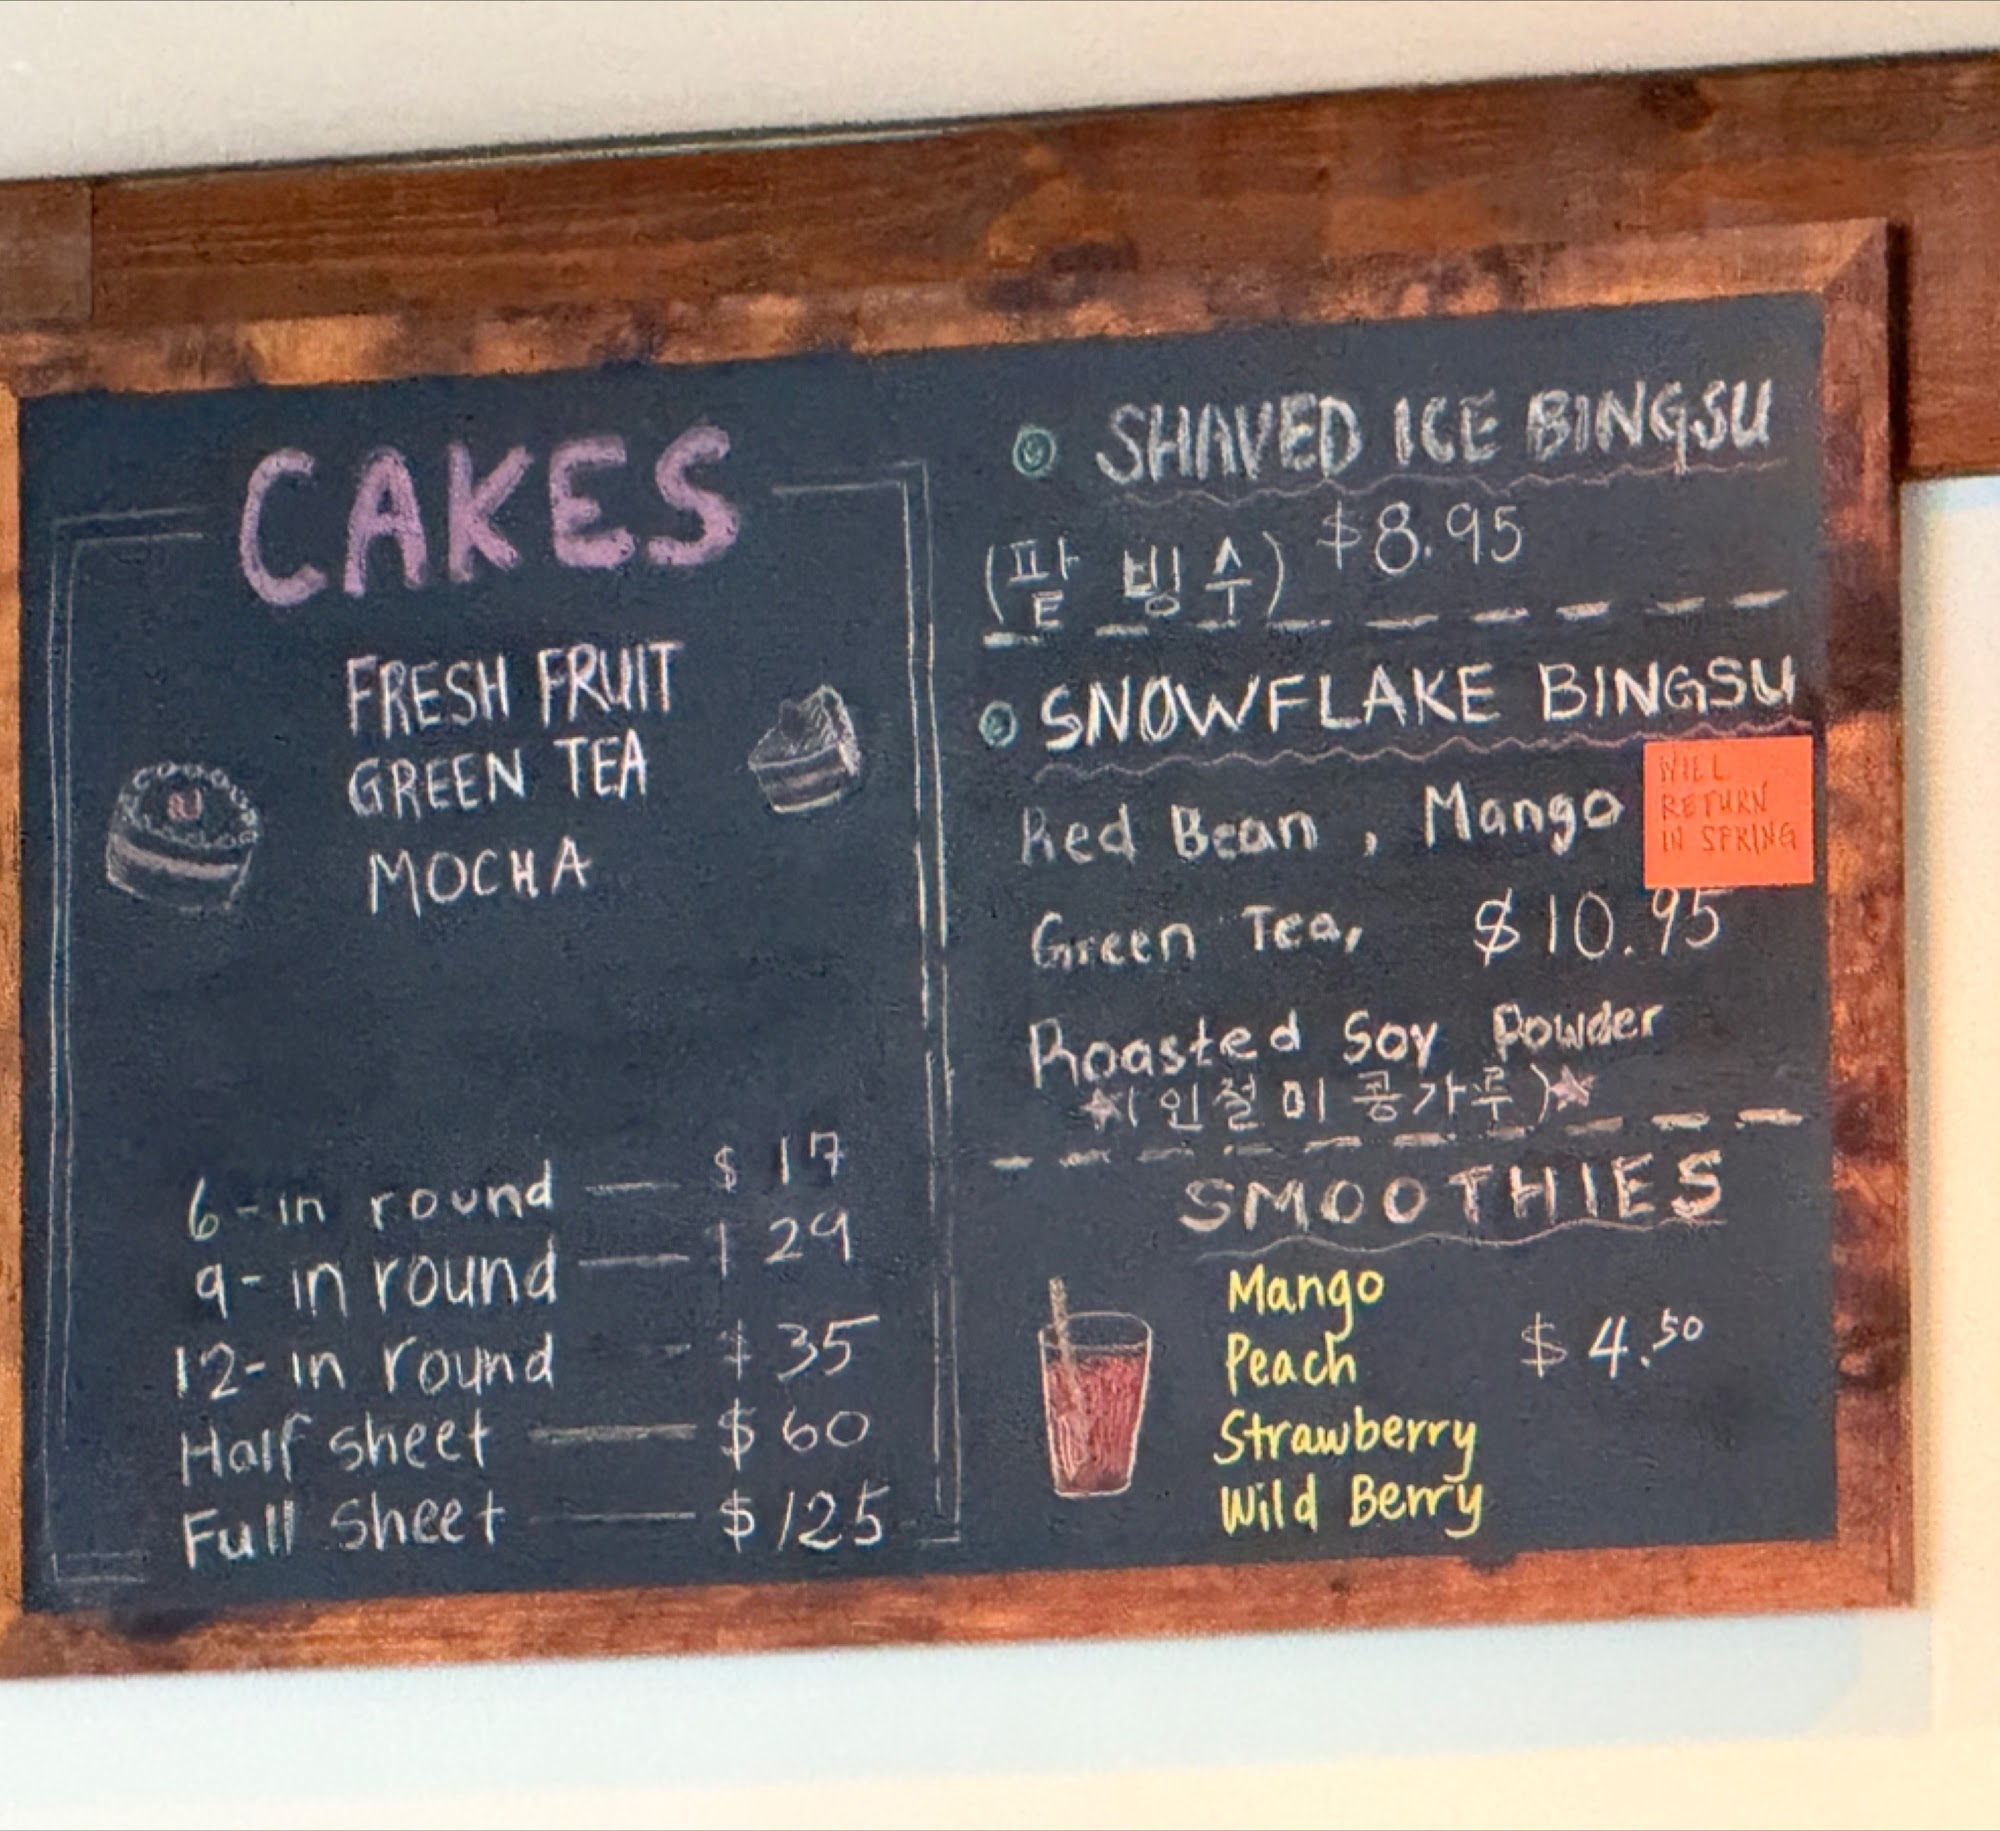 CAKES
FRESH FRUIT
GREEN TEA
MOCHA
6-in round — $ 17
9-in round — $ 29
12-in round — $ 35
Half sheet — $ 60
Full sheet — $ 125
SHAVED ICE BINGSU
(팥 빙수) $8.95
SNOWFLAKE BINGSU
Red Bean, Mango
WILL
RETURN
IN SPRING
Green Tea, $10.95
Roasted Soy Powder
★(인절미 콩가루)★
SMOOTHIES
Mango
Peach
$4.50
Strawberry
Wild Berry